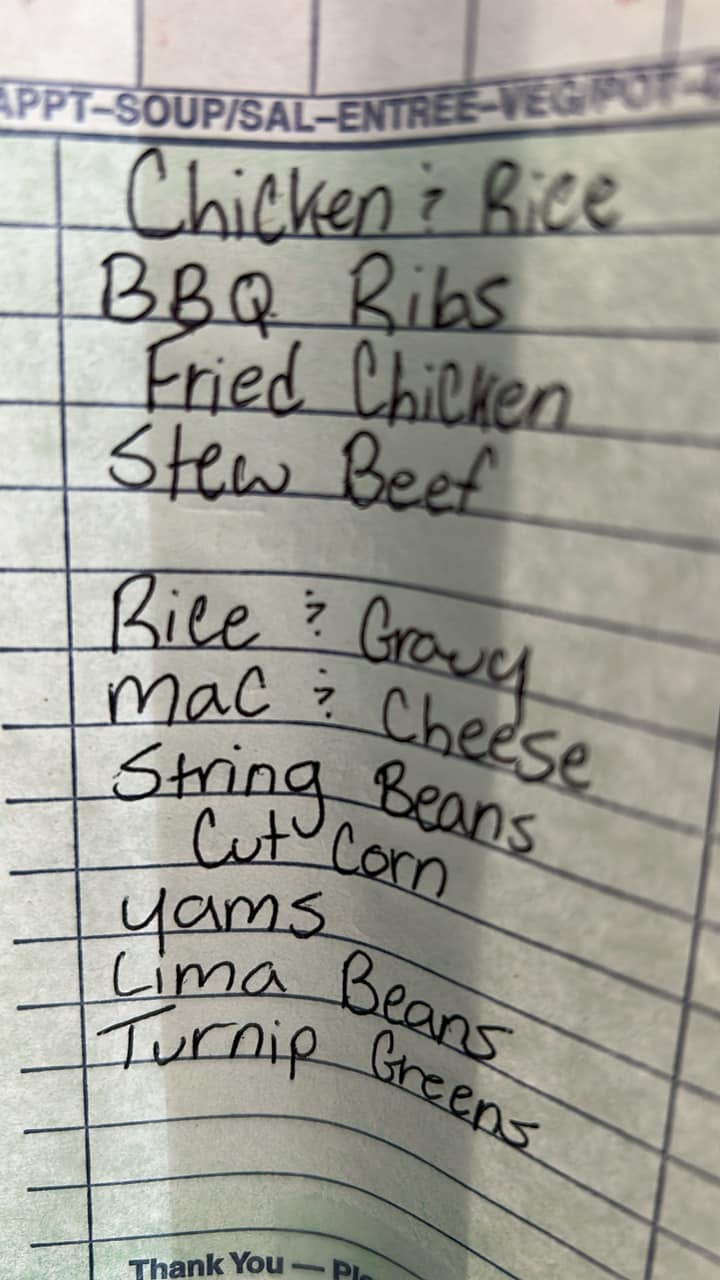 APPT–SOUP/SAL–ENTREE–VEG/POT–
Chicken & Rice
BBQ Ribs
Fried Chicken
Stew Beef
Rice & Gravy
Mac & Cheese
String Beans
Cut Corn
Yams
Lima Beans
Turnip Greens
Thank You —